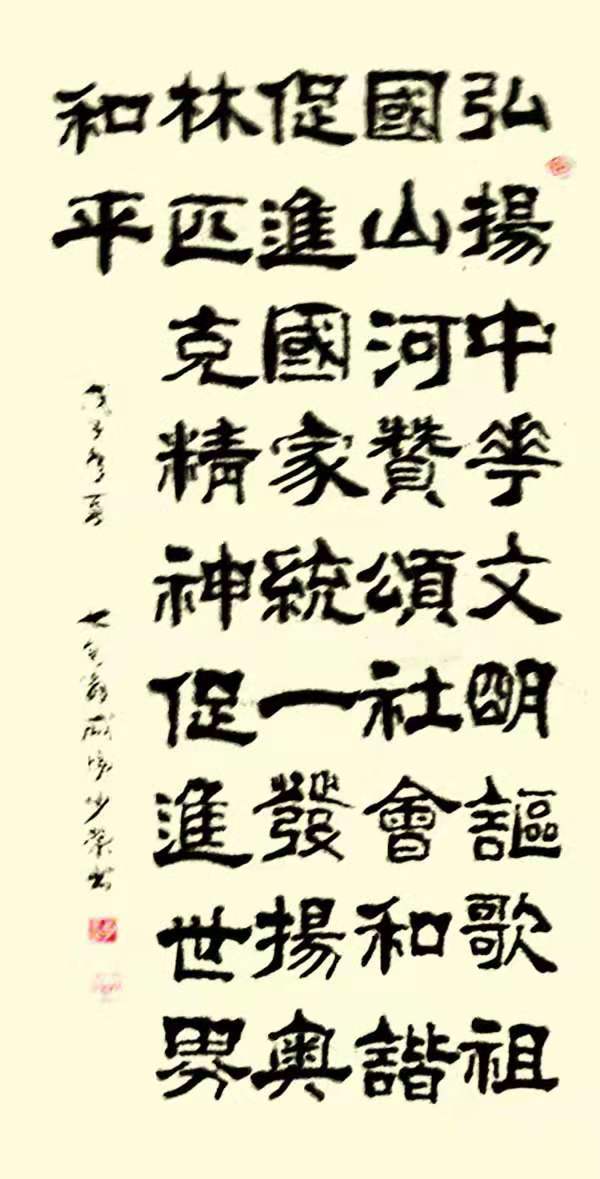 弘揚中華文明謳歌祖
國山河贊頌社會和諧
促進國家統一發揚奧
林匹克精神促進世界
和平
戊子年夏
少榮書